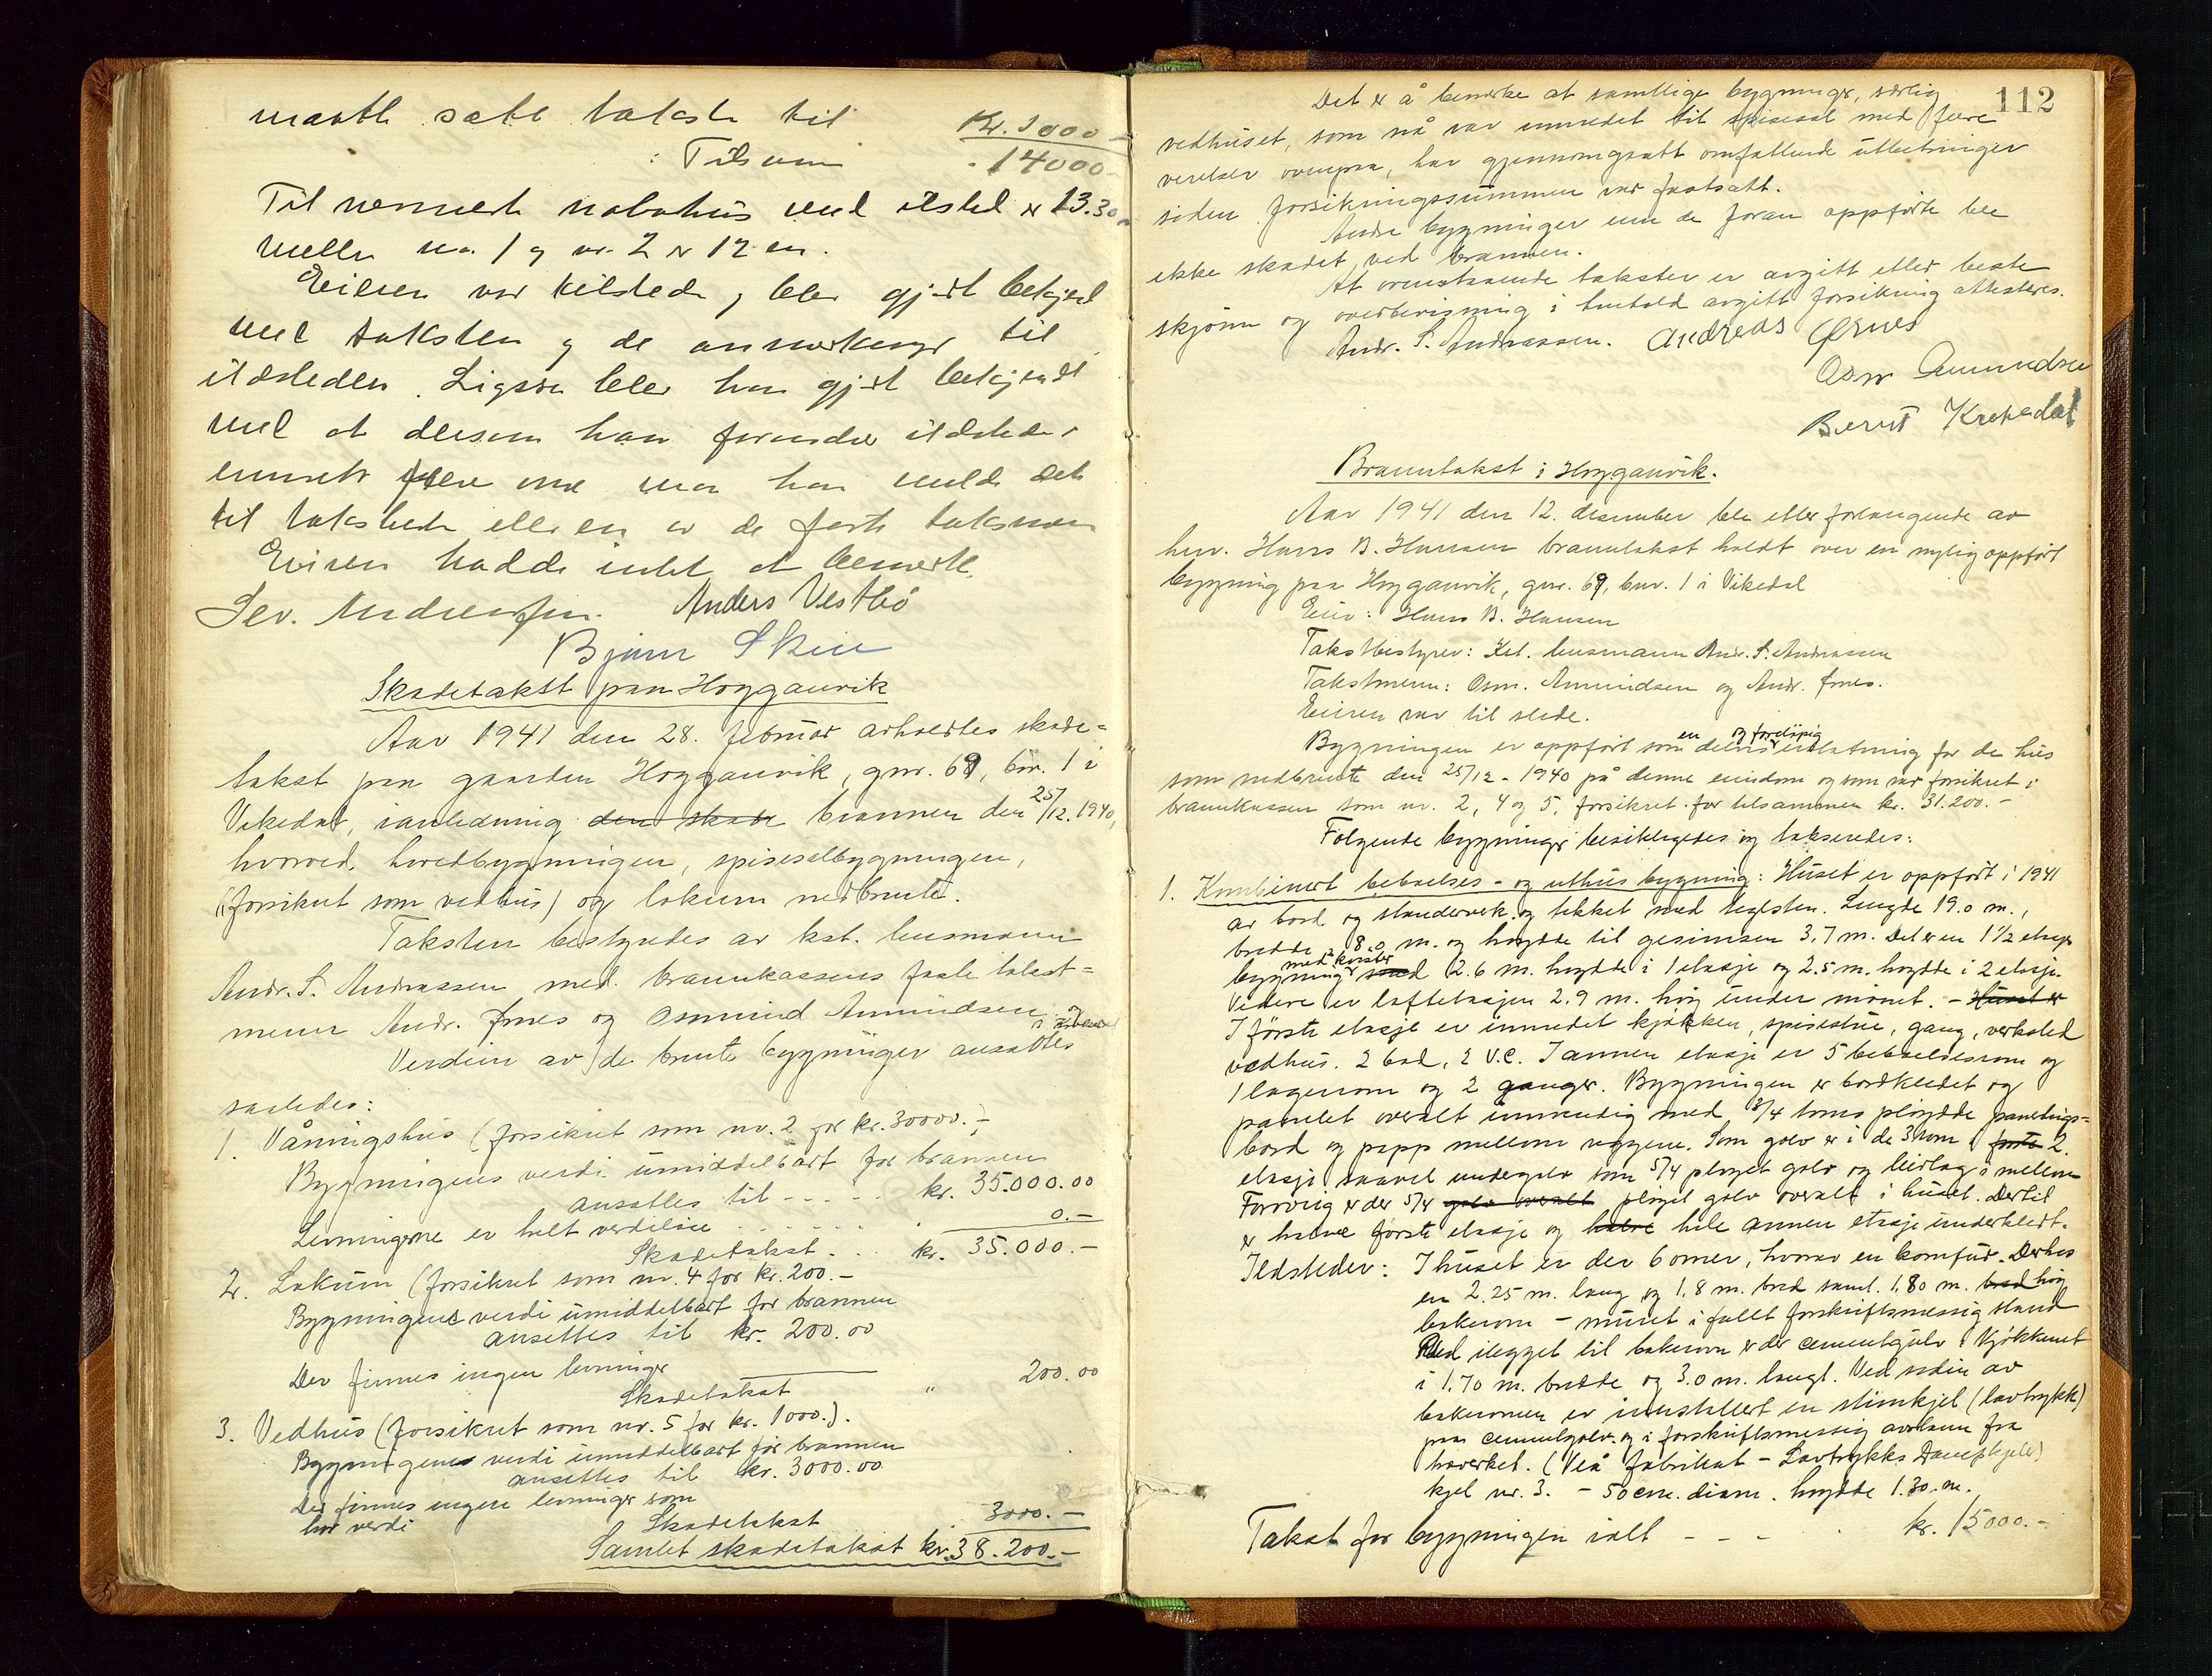 maatte sæte takste til Kr. 2000 -
: Tilsam - 14000 -
Til nærmeste nabohus med ilsted er 13.30 m
mellem no. 1 og nr. 2 er 12 m.
Eieren var tilstede, blev gjort bekjent
med taksten og de anmerkninger til
ildsteder. Ligsaa blev han gjort bekjendt
med at dersom han forandrer ildsteder
innsett flere ovne maa han melde det
til lakshede eller en av de faste taksmen
Eieren hadde intet at bemerke.
Sev. Andreassen. Anders Vestbø
Bjarn Skeie
Skadetakst paa Hogganvik
Aar 1941 den 28. februar avholdtes skade=
takst paa gaarden Hogganvik, gnr. 69, bnr. 1 i
Vikedal, i anledning den skade brannen den 25/12. 1940,
hvorved hovedbygningen, spisesalbygningen,
(forsikret som vedhus) og lokum nedbrente.
Taksten bestyredes av kst. lensmann
Andr. S. Andreassen med brannkassens faste takst=
menn Andr. Ørnes og Osmund Amundsen. og
Verdien av de brente bygninger ansattes
saaledes:
1. Våningshus (forsikret som nr. 2 for kr. 30000.-,
Bygningens verdi umiddelbart før brannen
ansattes til - - - - - kr. 35.000.00
Levningene er helt verdiløse - - - - - - 0.-
Skadetakst. . . kr. 35.000.-
2. Lokum (forsikret som nr. 4 for kr. 200.-
Bygningens verdi umiddelbart før brannen
ansettes til kr. 200.00
Der finnes ingen levninger
Skadetakst " 200.00
3. Vedhus (forsikret som nr. 5 for kr. 1000.).
Bygningens verdi umiddelbart før brannen
ansettes til kr. 3000.00
Der finnes ingen levninger som
har verdi
Skadetakst 3000.-
Samlet skadetakst kr. 38.200.-
112
Det er å bemerke at samtlige bygninger, særlig
vedhuset, som nå var innredet til spisesal med flere
verelser ovenpaa, har gjennomgaatt omfattende utbetringer
siden forsikringssummen var fastsatt.
Andre bygninger enn de foran oppførte ble
ikke skadet ved brannen.
At ovenstaaende takster er avgitt etter beste
skjønn og overbevisning i henhold avgitt forsikring attesteres.
Andr. S. Andreassen. Andreas Ørnes
Osm Amundsen
Bernt Krakedal
Branntakst i Hogganvik.
Aar 1941 den 12. desember ble etter forlangende av
hrr. Hans B. Hansen branntakst holdt over en nylig oppført
bygning paa Hogganvik, gnr. 69, bnr. 1 i Vikedal
Eier: Hans B. Hansen
Takstbestyrer: Kst. lensmann Andr. S. Andreassen
Takstmenn: Osm. Amundsen og Andr. Ørnes.
Eieren var til stede.
Bygningen er oppført som en delvis og foreløpig erstatning for de hus
som nedbrente den 25/12 - 1940 på denne eiendom og som var forsikret i
brannkassen som nr. 2, 4 og 5, forsikret for tilsammen kr. 31.200.-
Følgende bygninger besiktigedes og takseredes:
1. Kombinert beboelses- og uthus bygning: Huset er oppført i 1941
av bord og standerverk og tekket med teglsten. Lengde 19.0 m.,
bredde 8.0 m. og høgdde til gesimsen 3.7 m. Det er en 1 1/2 etasjes
bygning med kvister med 2.6 m. høgdde i 1 etasje og 2.5 m. høgdde i 2 etasje.
Videre er loftetasjen 2.9 m. høg under mønet. - Huset er
I første etasje er innredet kjøkken, spisestue, gang, verksted
vedhus. 2 bad, 2 V.C. I annen etasje er 5 beboelsesrom og
1 lagerrom og 2 ganger. Bygningen er bordkledet og
panelet overalt innvendig med 3/4 toms pløgdde panelings=
bord og papp mellom veggene. Som golv er i de 3 rom i første 2.
etasje saavel undergolv som 5/4 pløget golv og leirlag imellem
Forøvrig er der 5/4 golv overalt pløget golv overalt i huset. Dertil
er halve første etasje og halve hele annen etasje underkledt.
Ildsteder: I huset er der 6 ovner, hvorav en komfur. Derhos
en 2.25 m. lang og 1.8 m. bred samt. 1.80 m. bred høg
bakerovn - muret i fullt forskriftsmessig stand
Ved ilegget til bakerovn er der cementgulv i kjøkkenet
i 1.70 m. bredde og 3.0 m. langt. Ved siden av
bakerovnen er innstallert en stimkjel (lavtrykk)
paa cementgolv og i forskriftsmessig avstann fra
treverket. (Veå fabrikat - Lavtrykks Dampkjele)
kjel nr. 3. - 50 cm. diam. høgdde 1.30 m.
Takst for bygningen ialt - - - . kr. 15000.-